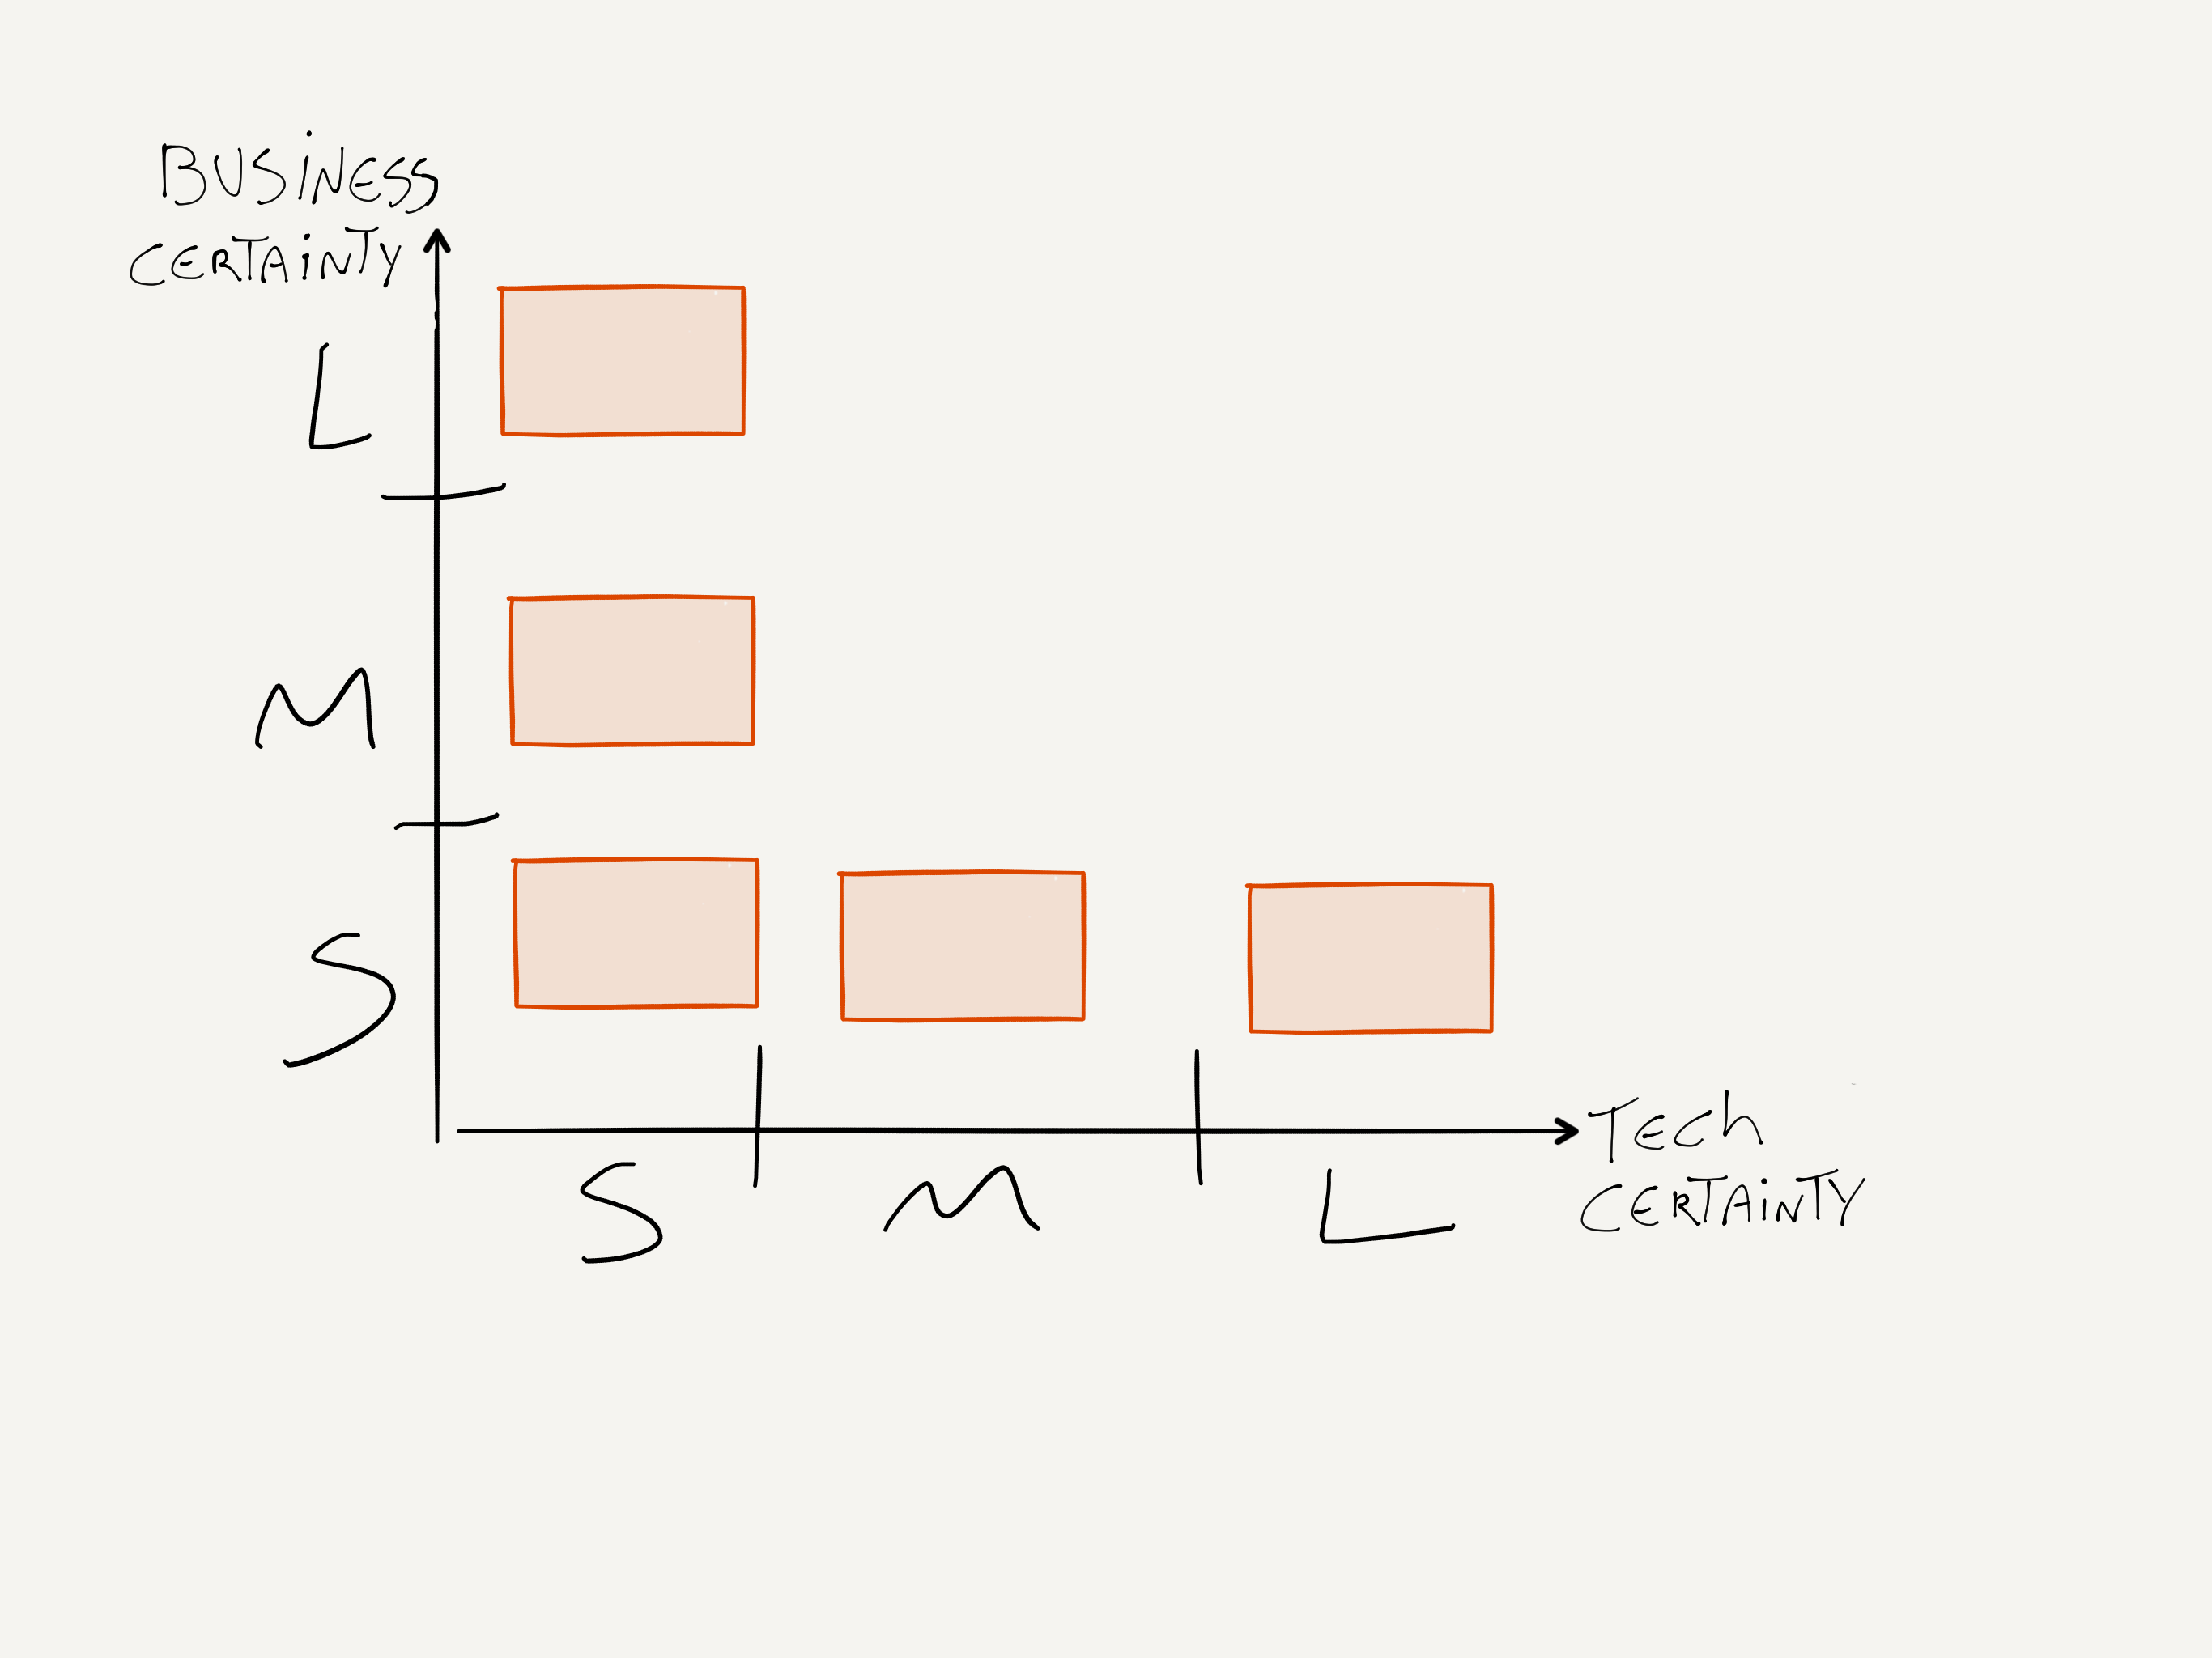 BUSiNESS
CERTAiNTY
L
M
S
S
M
L
TEch
CERTAiNTY